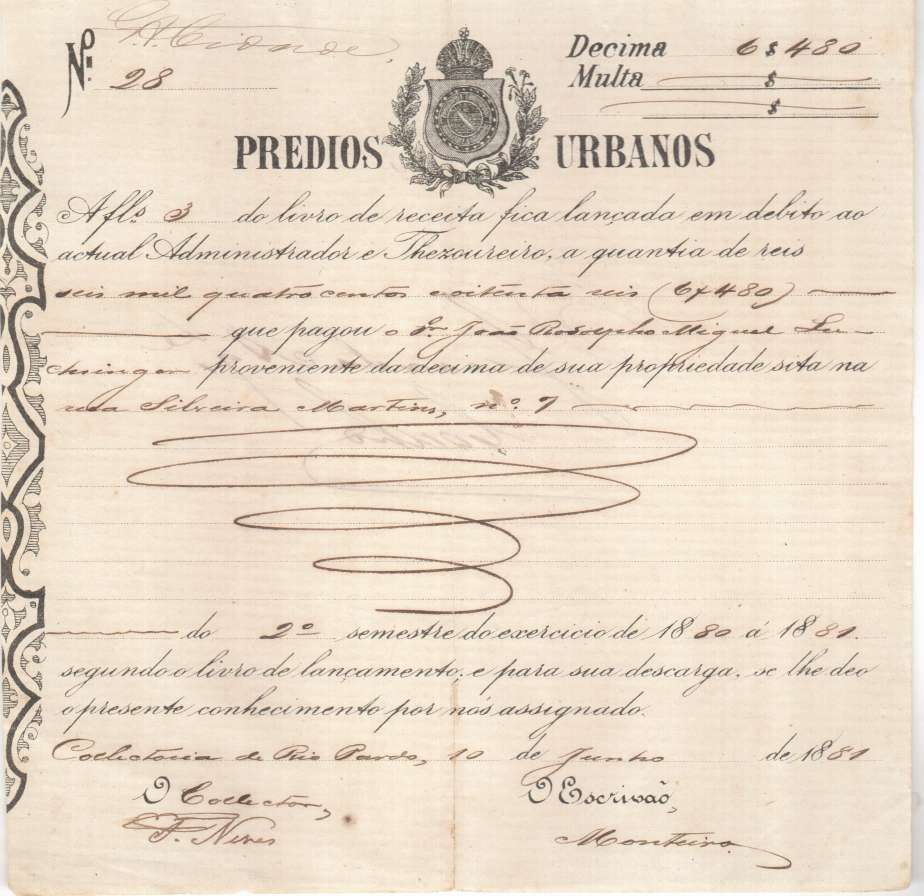 Nº 28
Decima 6$480
Multa $
$
PREDIOS URBANOS
A fls. 3 do livro de receita fica lançada em debito ao
actual Administrador e Thezoureiro, a quantia de reis
seis mil quatrocentos e oitenta reis (6$480)
que pagou o Sr. João Rodolpho Miguel Lu-
chsinger proveniente da decima de sua propriedade sita na
rua Silveira Martins, nº 9
do 2º semestre do exercicio de 1880 á 1881.
segundo o livro de lançamento, e para sua descarga, se lhe deo
o presente conhecimento por nós assignado.
Collectoria de Rio Pardo, 10 de Junho de 1881
O Collector, O Escrivão,
F. Neves Monteiro